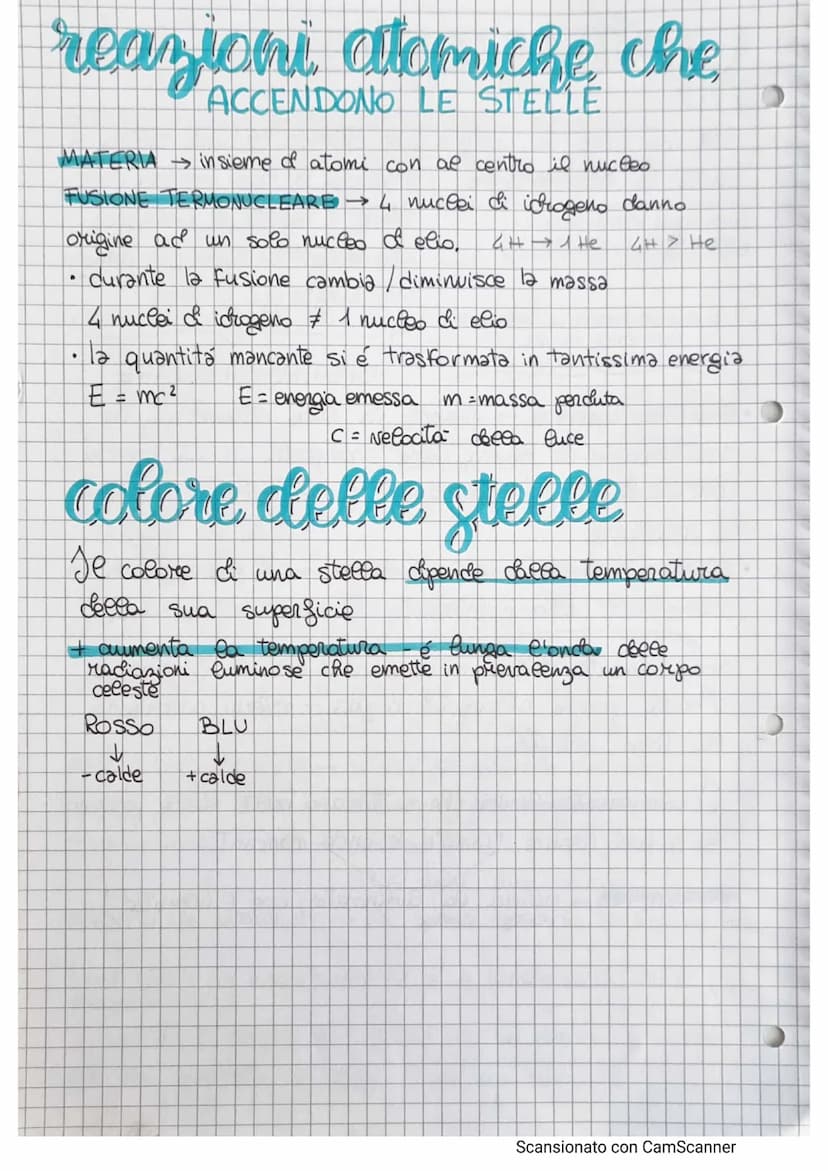 reazioni atomiche che
ACCENDONO LE STELLE
MATERIA → insieme di atomi con al centro il nucleo
FUSIONE TERMONUCLEARE → 4 nuclei di idrogeno danno
origine ad un solo nucleo di elio. 4H → 1 He 4H > He
• durante la fusione cambia / diminuisce la massa
4 nuclei di idrogeno ≠ 1 nucleo di elio
• la quantità mancante si é trasformata in tantissima energia
E = mc² E = energia emessa m = massa perduta
C = velocità della luce
colore delle stelle
Il colore di una stella dipende dalla temperatura
della sua superficie
+ aumenta la temperatura - é lunga l'onda delle
radiazioni luminose che emette in prevalenza un corpo
celeste
ROSSO BLU
↓ ↓
- calde + calde
Scansionato con CamScanner